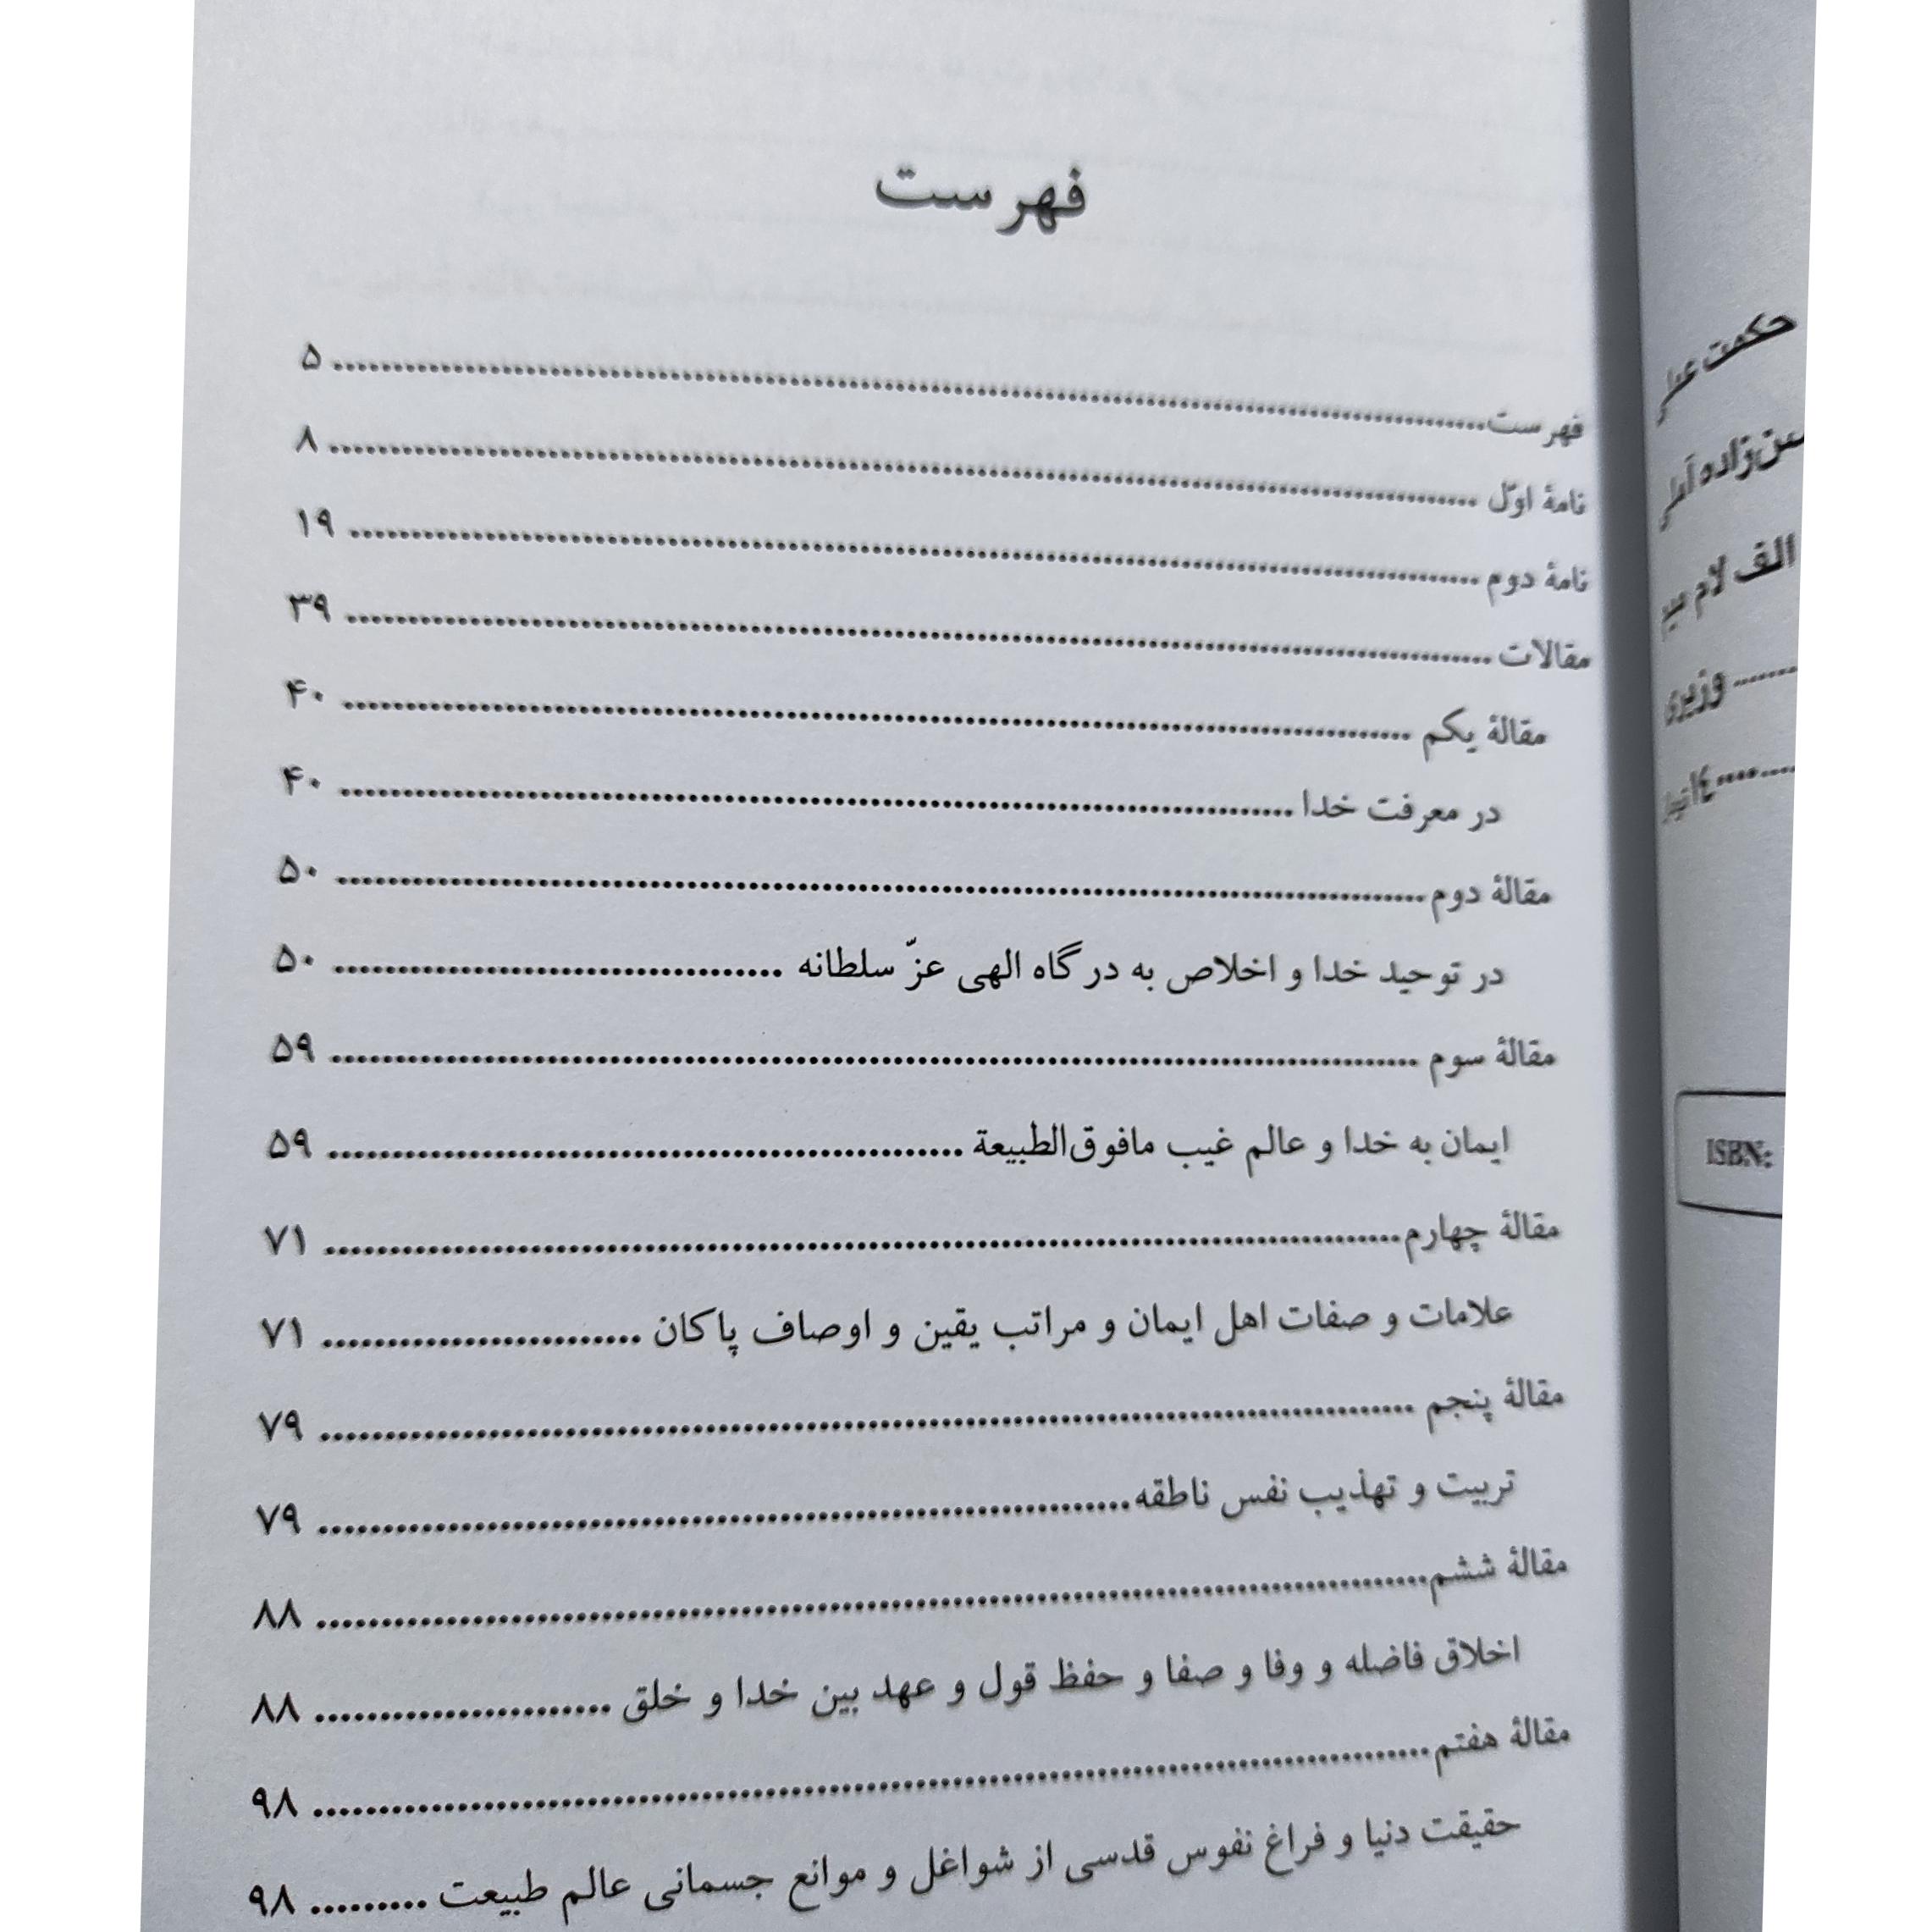 فهرست
فهرست ........ ۵
نامهٔ اوّل ........ ۸
نامهٔ دوم ........ ۱۹
مقالات ........ ۳۹
مقالهٔ یکم ........ ۴۰
در معرفت خدا ........ ۴۰
مقالهٔ دوم ........ ۵۰
در توحید خدا و اخلاص به درگاه الهی عزّ سلطانه ........ ۵۰
مقالهٔ سوم ........ ۵۹
ایمان به خدا و عالم غیب مافوق‌الطبیعة ........ ۵۹
مقالهٔ چهارم ........ ۷۱
علامات و صفات اهل ایمان و مراتب یقین و اوصاف پاکان ........ ۷۱
مقالهٔ پنجم ........ ۷۹
تربیت و تهذیب نفس ناطقه ........ ۷۹
مقالهٔ ششم ........ ۸۸
اخلاق فاضله و وفا و صفا و حفظ قول و عهد بین خدا و خلق ........ ۸۸
مقالهٔ هفتم ........ ۹۸
حقیقت دنیا و فراغ نفوس قدسی از شواغل و موانع جسمانی عالم طبیعت ........ ۹۸
حکمت
الف لام
وزیری
ISBN: